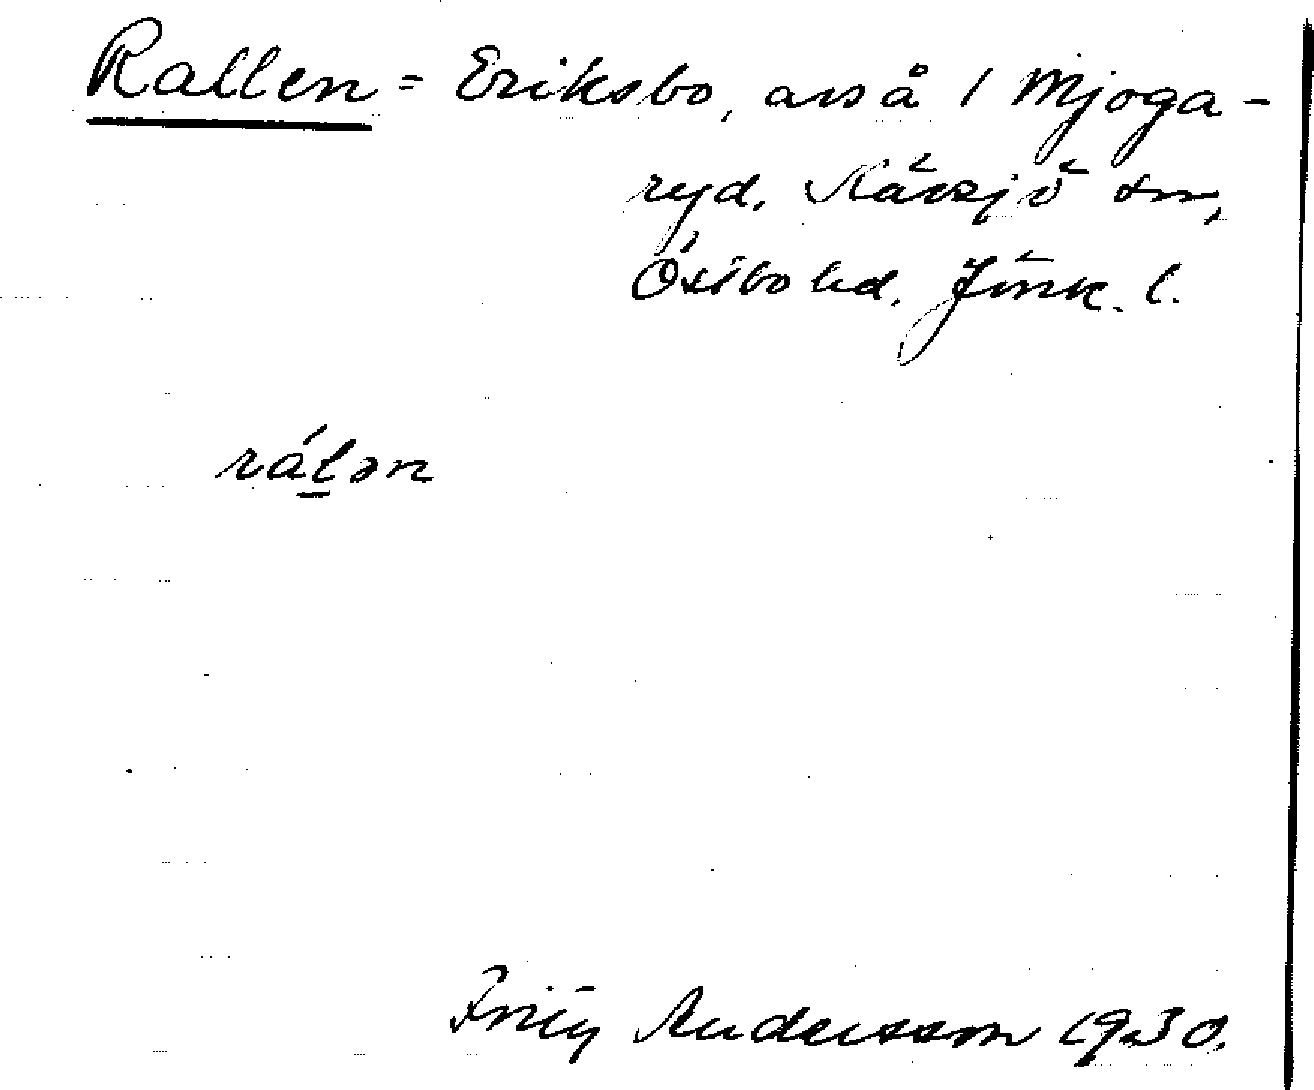 Rallen = Eriksbo, avs å 1 Mjoga-
ryd, Kävsjö sn,
Östbo hd, Jönk. l.
rálən
Fritz Andersson 1930.